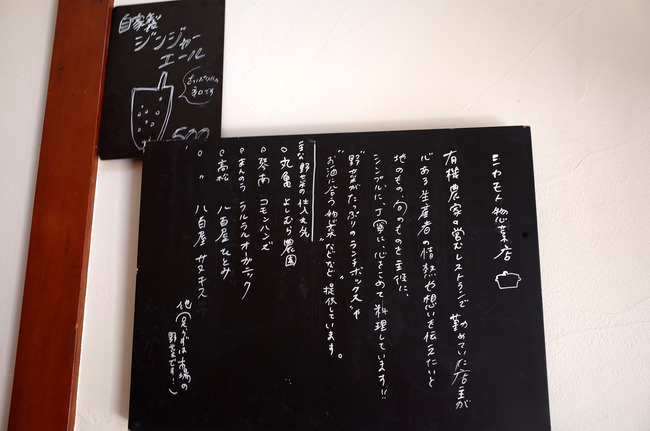 自家製
ジンジャー
エール
さっぱり
です
500
ミカモト惣菜店
有機農家の営むレストランで勤めていた店主が
心ある生産者の情熱や想いを伝えたいと
地のもの旬のものを主役に、
シンプルに、丁寧に、心をこめて料理しています!!
"野菜がたっぷりのランチボックス"や
"お酒に合う惣菜"などなど提供しています。
主な野菜の仕入れ先
○丸亀 よしむら農園
○琴南 コモンハンズ
○まんのう ラルラルオーガニック
○高松 八百屋ひとみ
○〃 八百屋サヌキス
他(足りない市場の
野菜です!)